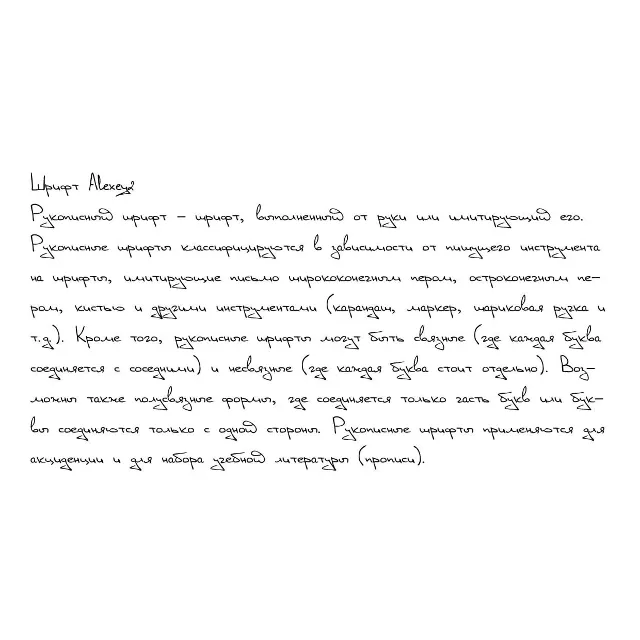 Шрифт Alexey2
Рукописный шрифт – шрифт, выполненный от руки или имитирующий его.
Рукописные шрифты классифицируются в зависимости от пишущего инструмента
на шрифты, имитирующие письмо ширококонечным пером, остроконечным пе-
ром, кистью и другими инструментами (карандаш, маркер, шариковая ручка и
т.д.). Кроме того, рукописные шрифты могут быть связные (где каждая буква
соединяется с соседними) и несвязные (где каждая буква стоит отдельно). Воз-
можны также полусвязные формы, где соединяется только часть букв или бук-
вы соединяются только с одной стороны. Рукописные шрифты применяются для
акциденции и для набора учебной литературы (прописи).